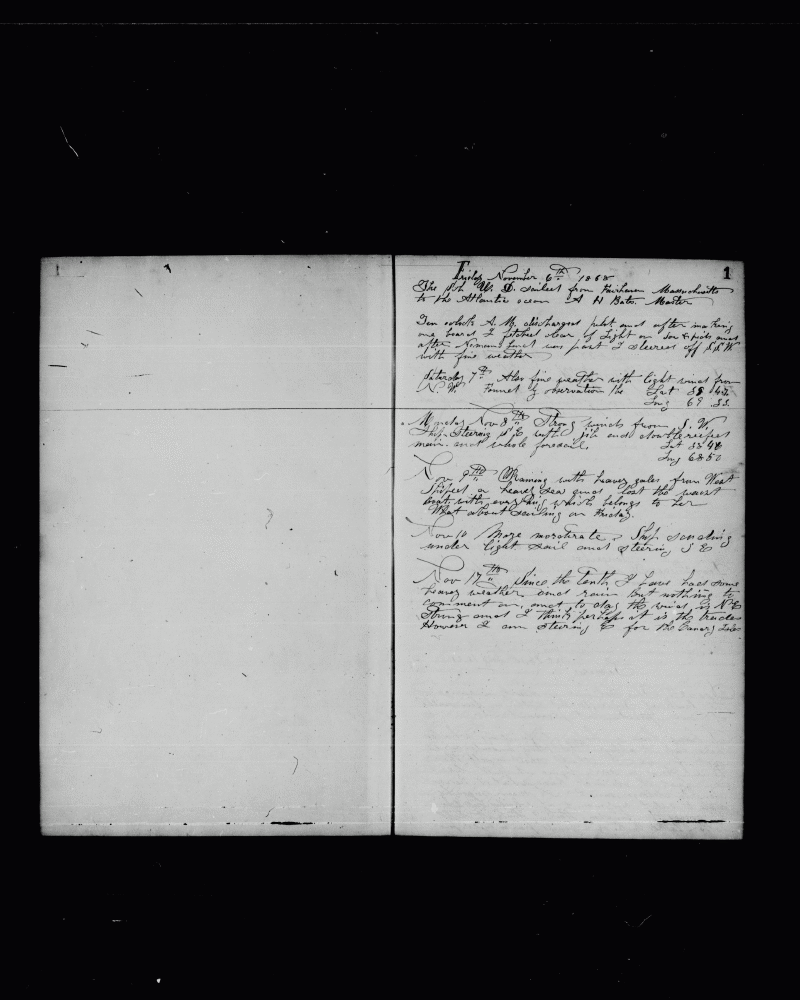 1
Friday November 6th 1868
1
The Sch W. D. sailed from Fairhaven Massachusetts
to the Atlantic ocean A H Bates Master
Ten oclock A. M. discharged pilot and after making
one board I fetched clear of Light on Sow & pids and
after Nomans Land was past I steered off S.S.W
with fine weather
Saturday 7th Also fine weather with light wind from
N. W. Found by observation the Lat 38 43
Long 69 33
Monday Nov 8th Strong winds from S. W.
Ship Steering S E with jib and double reefed
main and whole foresail, Lat 38 48
Long 68 50
Nov, 9th Morning with heavy gales from West
Shipped a heavy sea and lost the waist
boat with everything which belongs to her
What about sailing on Friday.
Nov 10 More moderate. Ship scudding
under light sail and steering S E
Nov 17th Since the Tenth I have had some
heavy weather and rain but nothing to
comment on, and to day the wind is N E
Strong and I think perhaps it is the trades
However I am steering E for the Canary Isles